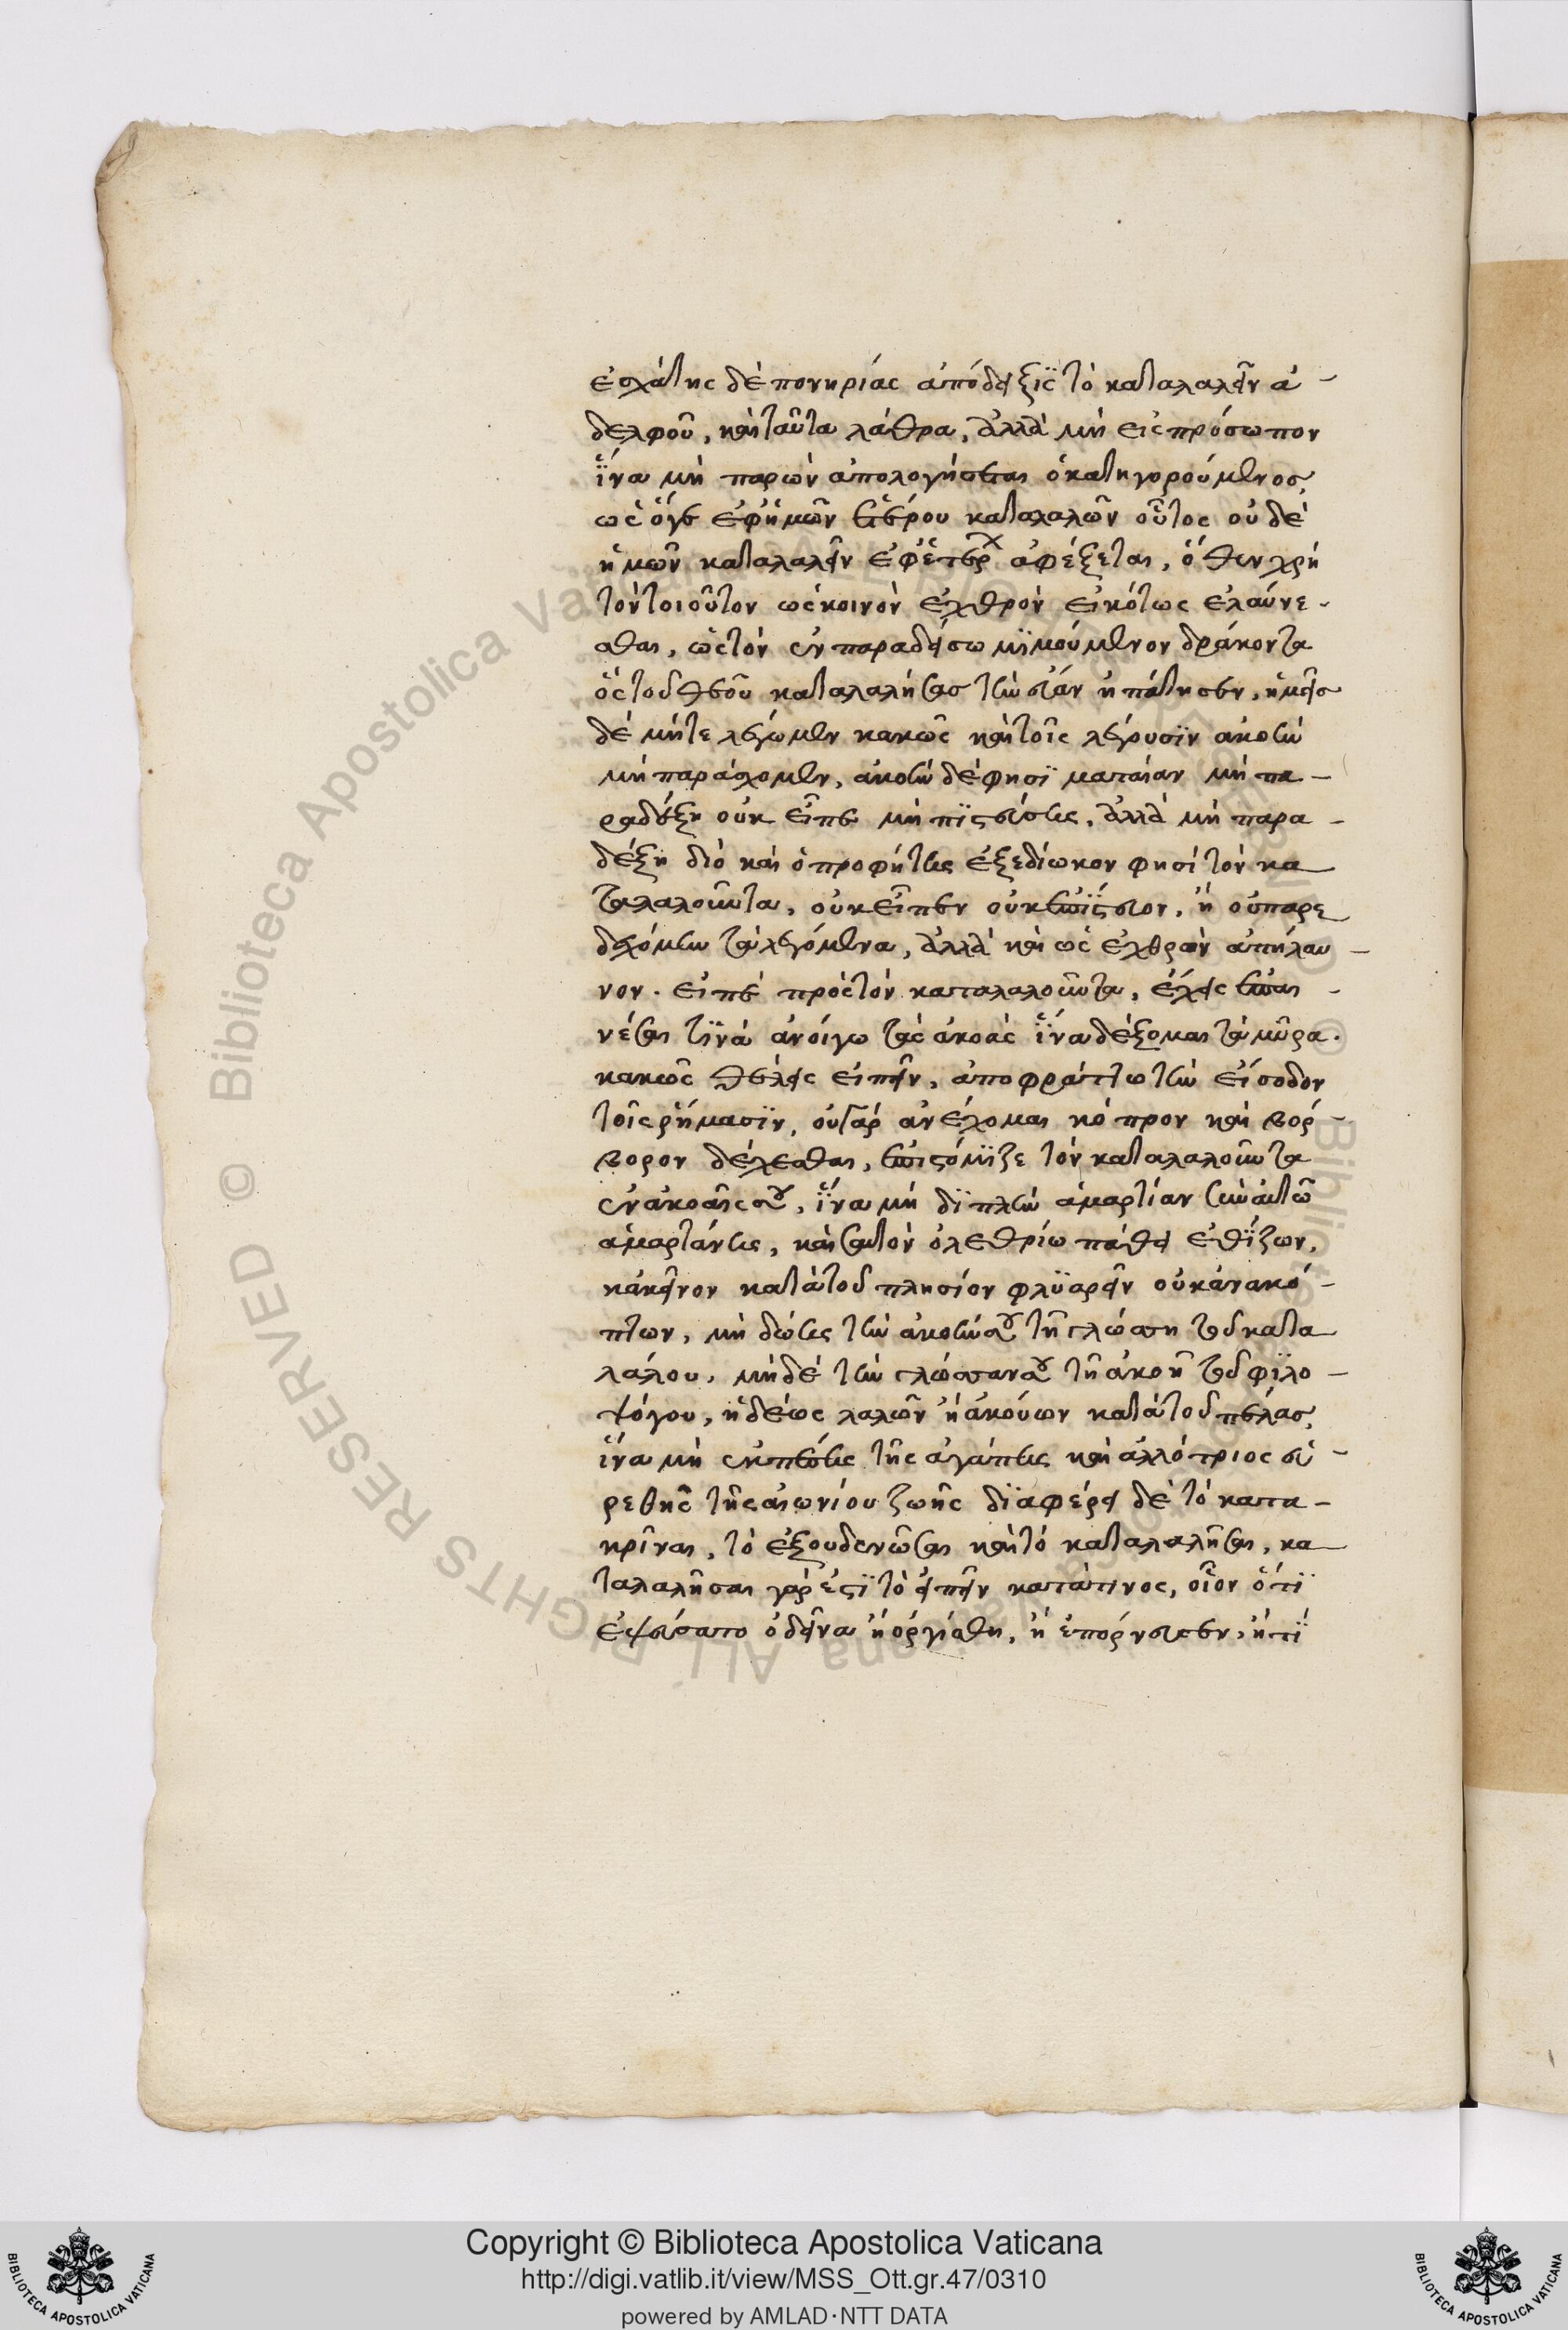 ἐσχάτης δὲ πονηρίας ἀπόδειξις τὸ καταλαλεῖν ἀ-
δελφοῦ, καὶ ταῦτα λάθρα, ἀλλὰ μὴ εἰς πρόσωπον
ἵνα μὴ παρὼν ἀπολογήσεται ὁ κατηγορούμενος,
ὡς ὅγε ἐφ' ἡμῶν ἑτέρου καταλαλῶν οὗτος οὐδὲ
ἡμῶν καταλαλεῖν ἐφ' ἑτέρ ἀφέξεται, ὅθεν χρὴ
τὸν τοιοῦτον ὡς κοινὸν ἐχθρὸν εἰκότως ἐλαύνε-
σθαι, ὡς τὸν ἐν παραδείσω μιμούμενον δράκοντα
ὃς τοῦ θεοῦ καταλαλήσας τὴν εὔαν ἠπάτησεν, ἡμεῖς
δὲ μήτε λέγωμεν κακῶς καὶ τοῖς λέγουσιν ἀκοὴν
μὴ παράσχομεν, ἀκοὴν δὲ φησὶ ματαίαν μὴ πα-
ραδέξη οὐκ εἶπε μὴ πιστεύσης, ἀλλὰ μὴ παρα-
δέξη διὸ καὶ ὁ προφήτης ἐξεδίωκον φησὶ τὸν κα
ταλαλοῦντα, οὐκ εἶπεν οὐκ ἐπίστευον, ἢ οὐ παρε
δεχόμην τὰ λεγόμενα, ἀλλὰ καὶ ὡς ἐχθρὸν ἀπήλαυ-
νον. εἰπὲ πρὸς τὸν καταλαλοῦντα, ἔχεις ἐπαι-
νέσαι τινὰ ἀνοίγω τὰς ἀκοὰς ἵνα δέξομαι τὰ μῦρα.
κακῶς θέλεις εἰπεῖν, ἀποφράττω τὴν εἴσοδον
τοῖς ῥήμασιν, οὐ γὰρ ἀνέχομαι κόπρον καὶ βόρ-
βορον δέχεσθαι, ἐπιστόμιζε τὸν καταλαλοῦντα
ἐν ἀκοαῖς σου, ἵνα μὴ διπλὴν ἁμαρτίαν σὺν αὐτῶ
ἁμαρτάνης, καὶ σαυτὸν ὀλεθρίω πάθει ἐθίζων,
κἀκεῖνον κατὰ τοῦ πλησίον φλυαρεῖν οὐκ ἀνακό-
πτων, μὴ δώης τὴν ἀκοήν σου τῆ γλώσση τοῦ κατα
λάλου, μὴ δὲ τὴν γλώσσαν σου τῆ ἀκοῆ τοῦ φιλο-
ψόγου, ἡδέως λαλῶν ἢ ἀκούων κατὰ τοῦ πέλας,
ἵνα μὴ ἐκπέσης τῆς ἀγάπης καὶ ἀλλότριος εὑ-
ρεθῆς τῆς αἰωνίου ζωῆς διαφέρει δὲ τὸ κατα-
κρῖναι, τὸ ἐξουδενῶσαι καὶ τὸ καταλαλῆσαι, κα
ταλαλῆσαι γάρ ἐστὶ τὸ εἰπεῖν κατὰ τινος, οἷον ὅτι
ἐψεύσατο ὁ δεῖνα ἢ ὀργίσθη, ἢ ἐπόρνευσεν, ἤ τί
Copyright © Biblioteca Apostolica Vaticana
http://digi.vatlib.it/view/MSS_Ott.gr.47/0310
powered by AMLAD·NTT DATA